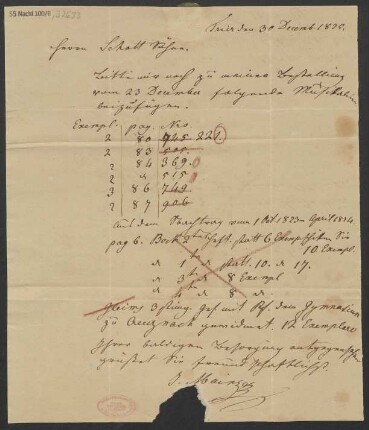 55 Nachl 100/B
Trier den 30 Decemb 1825.
Herrn Schott Söhne.
Bitte mir noch zu meiner Bestellung
vom 23 December folgende Musikalien
beizufügen.
Exempl. pag. Nro.
2 80 745 221
2 83
2 84 369
2 " 515
3 86 749
2 87 906
Aus dem Nachtrag vom 1 Oct. 1823 – April 1824
pag 6. statt 6 Sie
10 Exempl.
1 statt. 10. 17.
3 8 Exempl
4 8
3 stimg. Ges. mit Pf. dem Gymnasium
zu gewidmet. 12 Exemplare
Ihrer baldigen Besorgung entgegensehend
grüßet Sie freundschaftlichst.
J. Mainzer